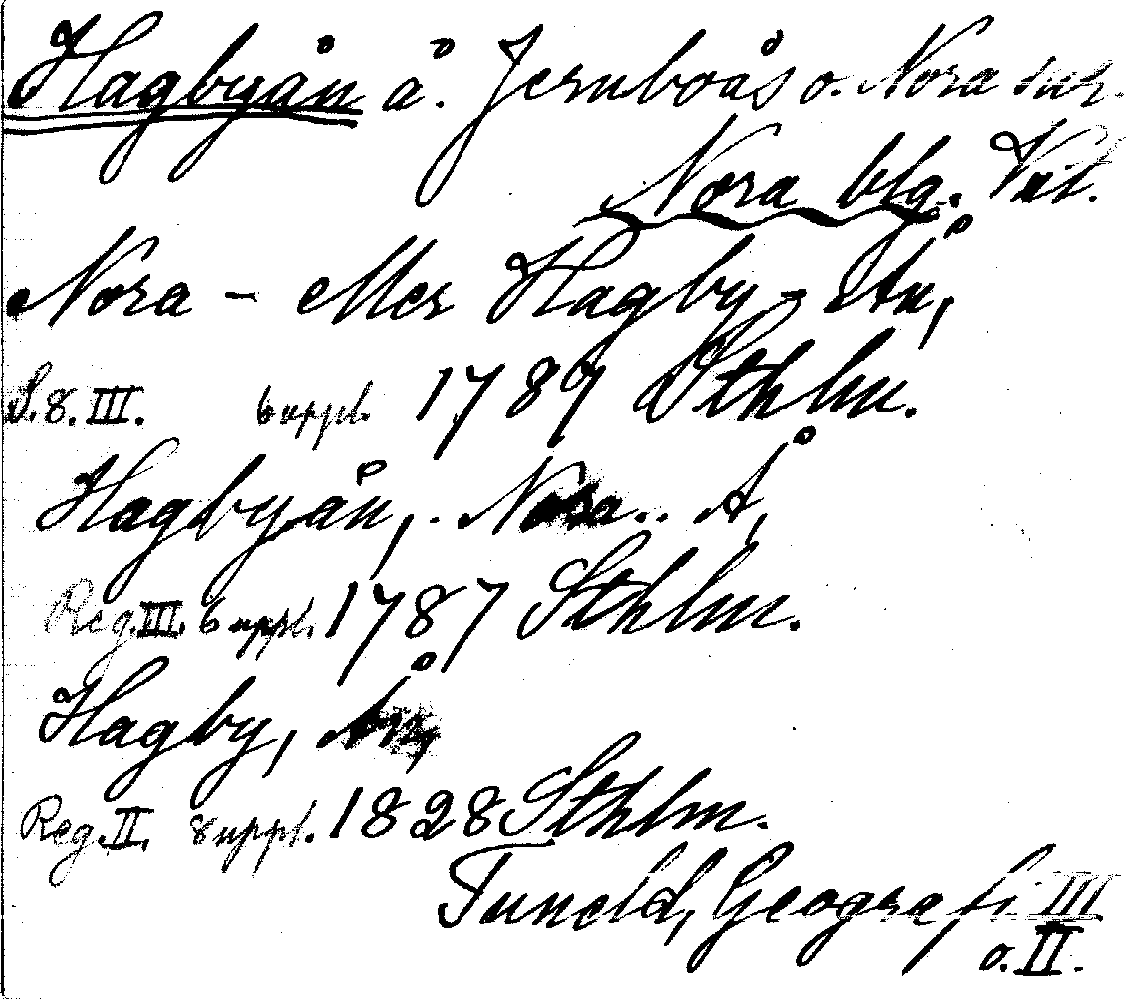 Hagbyån å. Jernboås o. Nora snr.
Nora blg. Vst.
Nora - eller Hagby - Ån,
S. 8. III. 6 uppl. 1787 Sthlm.
Hagbyån, Nora .. Å,
Reg. III. 6 uppl. 1787 Sthlm.
Hagby, Ån,
Reg. II. 8 uppl. 1828 Sthlm.
Tuneld, Geografi III
o. II.